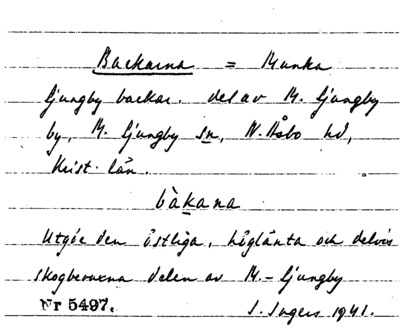 Backarna = Munka
ljungby backar. del av M. ljungby
by, M. ljungby sn, N. Åsbo hd,
Krist. län.
bàkana
Utgöe den östliga, höglänta och delvis
skogbevuxna delen av M.-ljungby
Nr 5497. I. Ingers 1941.